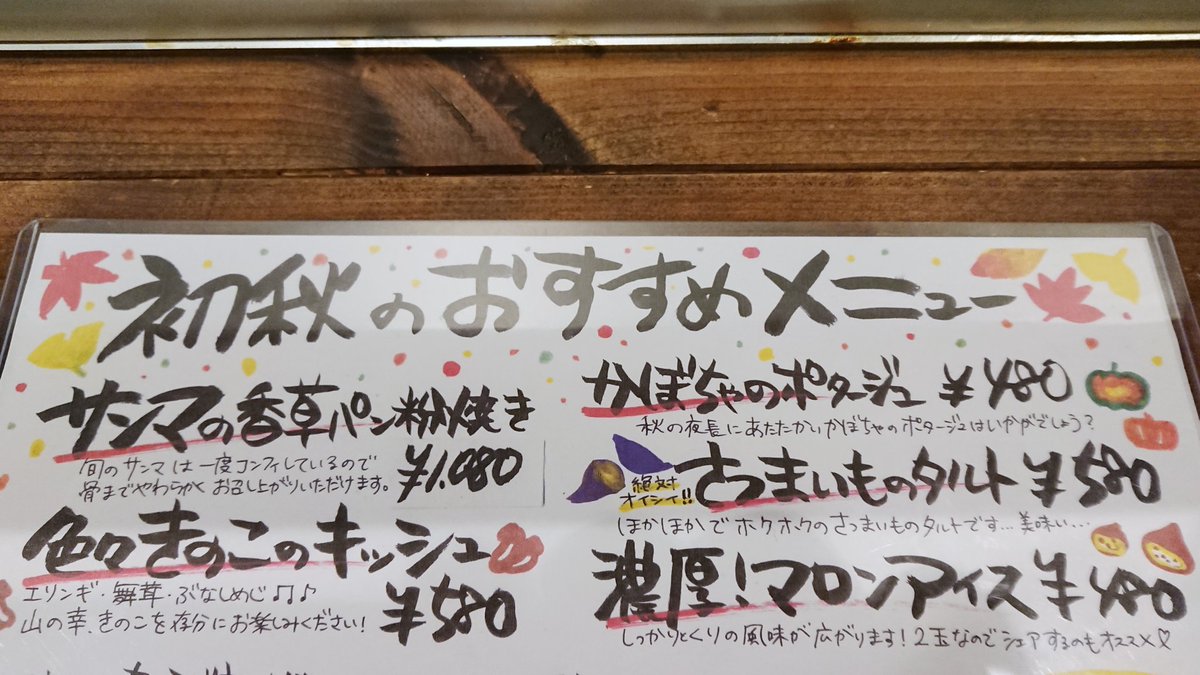 初秋のおすすめメニュー
サンマの香草パン粉焼き
旬のサンマは一度コンフィしているので
骨までやわらかくお召し上がりいただけます。
¥1,080
色々きのこのキッシュ
エリンギ・舞茸・ぶなしめじ♫♪
山の幸、きのこを存分にお楽しみください!
¥580
かぼちゃのポタージュ ¥480
秋の夜長にあたたかいかぼちゃのポタージュはいかがでしょう?
絶対
オイシイ!!
さつまいものタルト ¥580
ほかほかでホクホクのさつまいものタルトです…美味い…
濃厚!マロンアイス ¥480
しっかりとくりの風味が広がります!2玉なのでシェアするのもオススメ♡